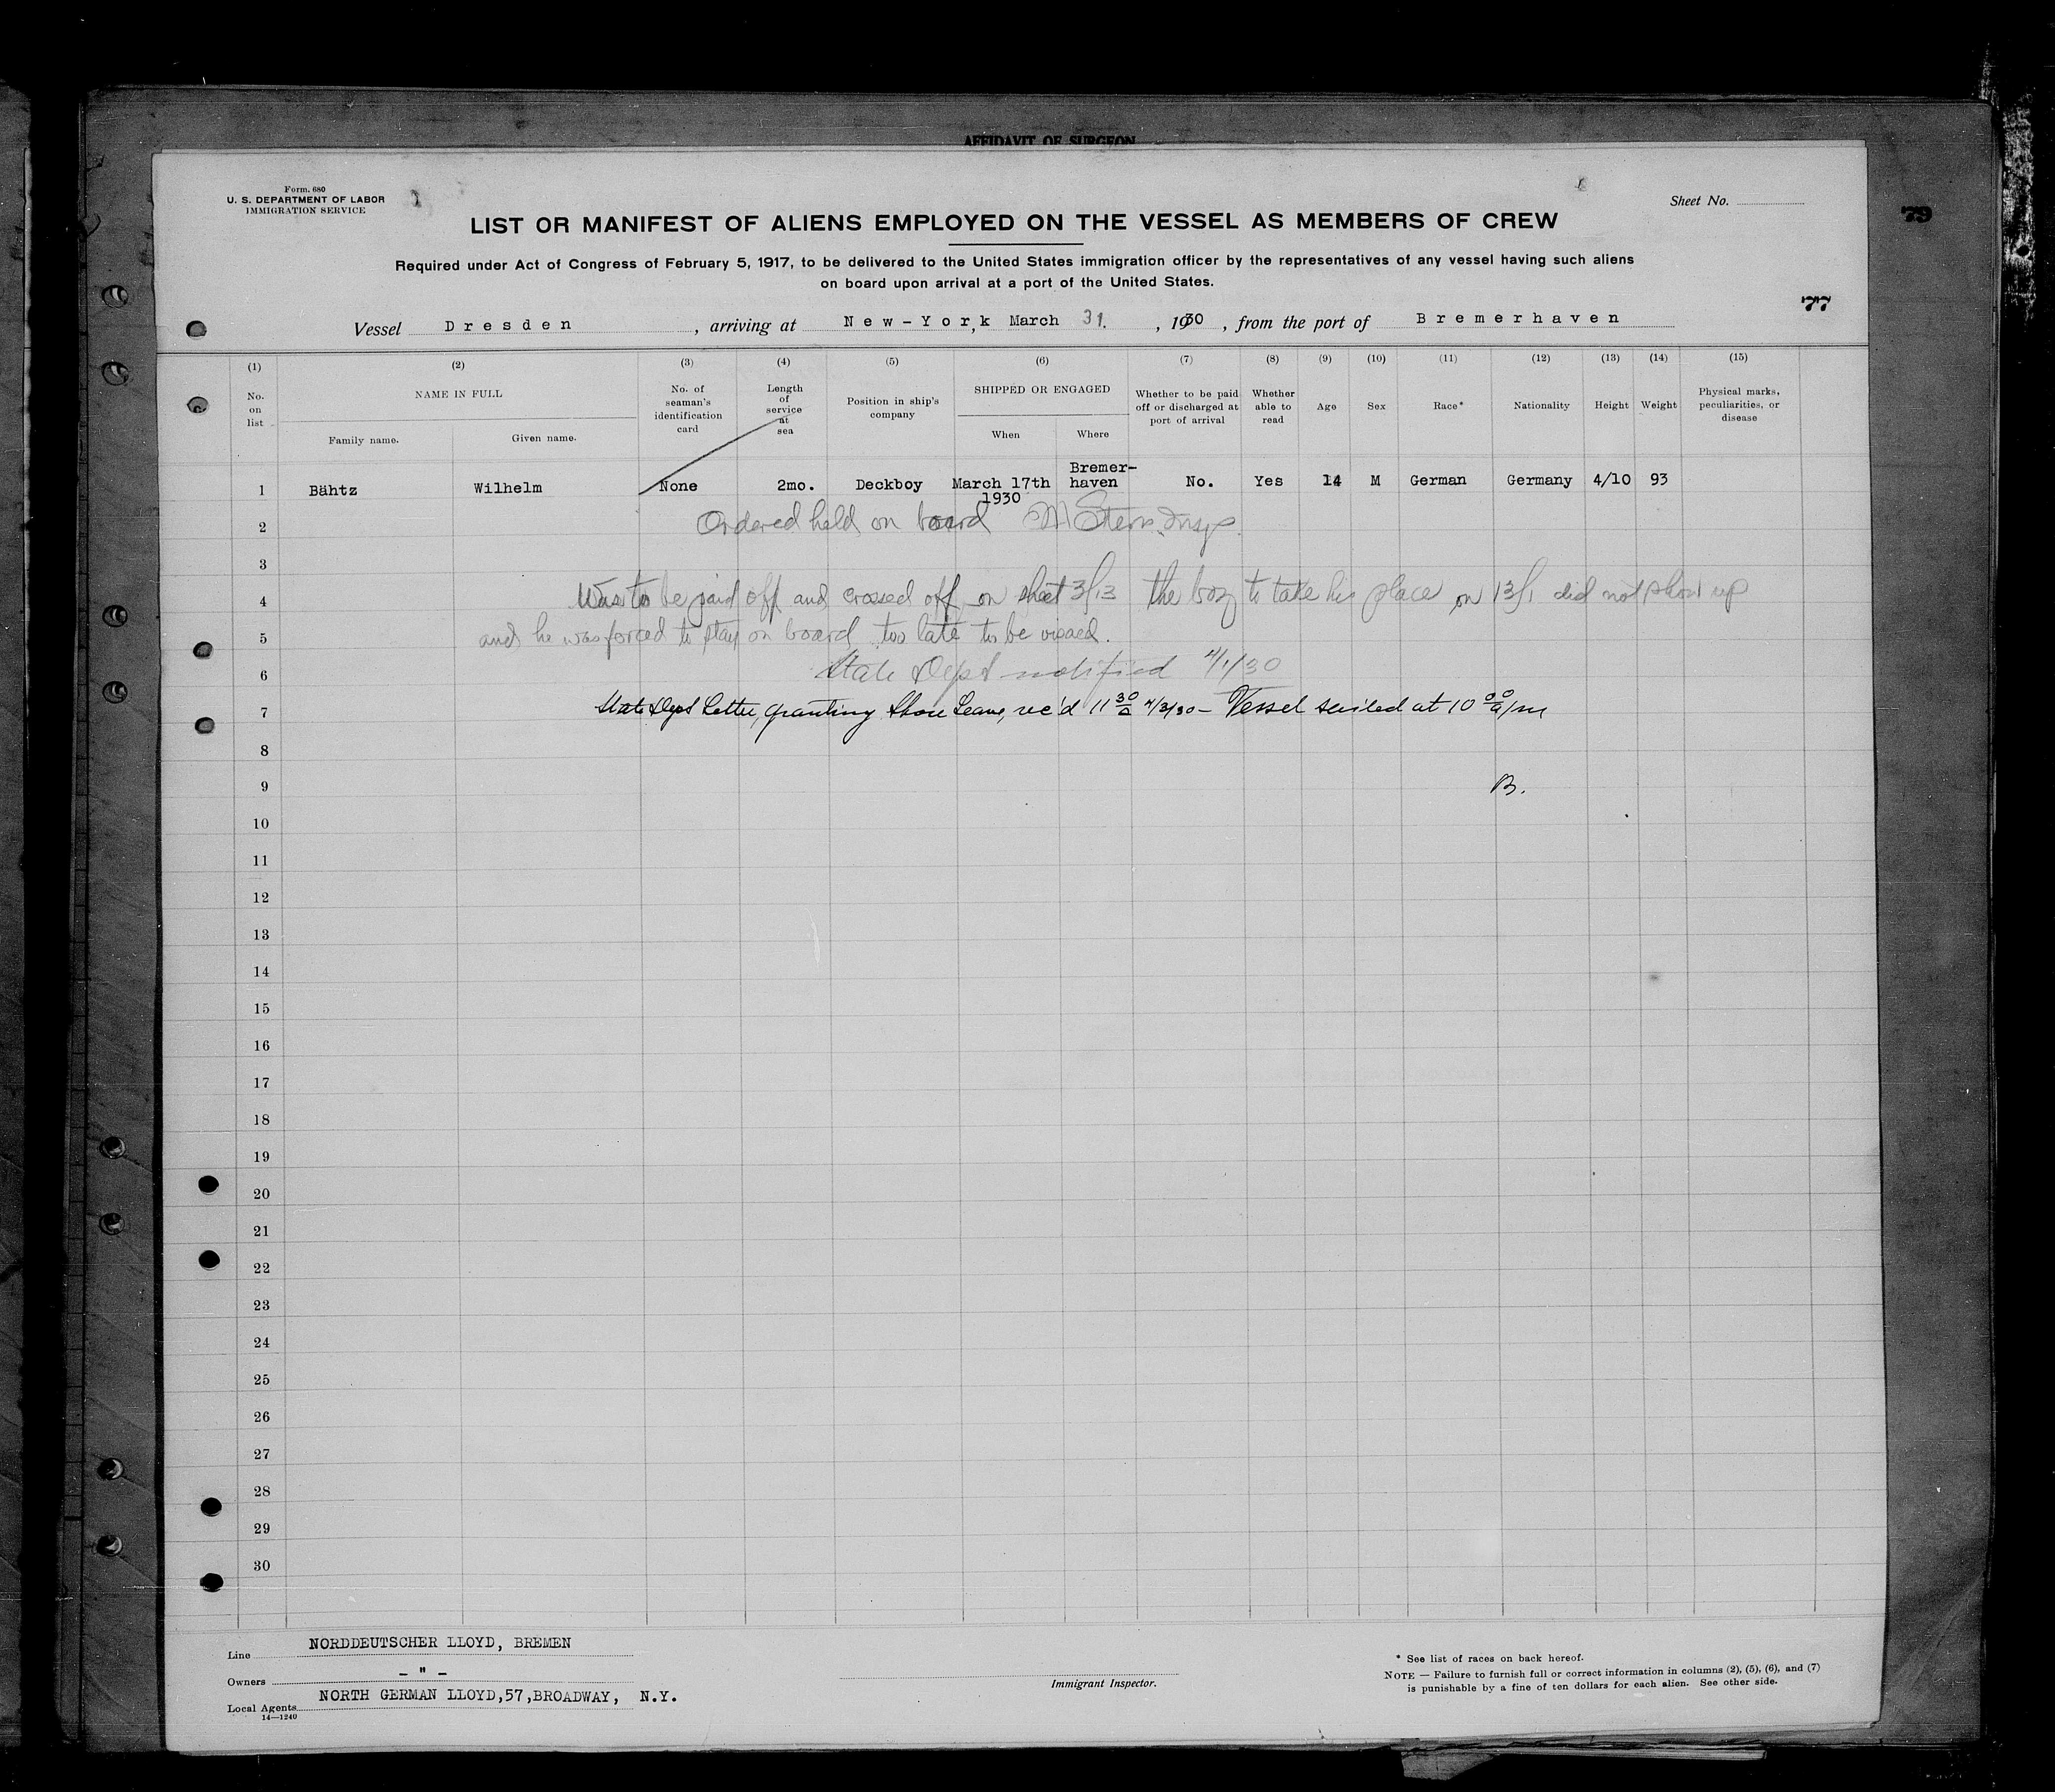 AFFIDAVIT OF SURGEON
Form. 680
U. S. DEPARTMENT OF LABOR
IMMIGRATION SERVICE
Sheet No.
79
LIST OR MANIFEST OF ALIENS EMPLOYED ON THE VESSEL AS MEMBERS OF CREW
Required under Act of Congress of February 5, 1917, to be delivered to the United States immigration officer by the representatives of any vessel having such aliens
on board upon arrival at a port of the United States.
77
Vessel Dresden, arriving at New-York, March 31., 1930, from the port of Bremerhaven
(1) (2) (3) (4) (5) (6) (7) (8) (9) (10) (11) (12) (13) (14) (15)
No. on list
NAME IN FULL
Family name. Given name.
No. of seaman's identification card
Length of service at sea
Position in ship's company
SHIPPED OR ENGAGED
When Where
Whether to be paid off or discharged at port of arrival
Whether able to read
Age
Sex
Race*
Nationality
Height
Weight
Physical marks, peculiarities, or disease
1 Bähtz Wilhelm None 2mo. Deckboy March 17th 1930 Bremer-haven No. Yes 14 M German Germany 4/10 93
2 Ordered held on board M Stern, Insp.
3
4 Was to be paid off and crossed off on sheet 3/13 the boy to take his place on 13/1 did not show up
5 and he was forced to stay on board too late to be visaed.
6 State Dept notified 4/1/30
7 State Dept Letter, granting Shore Leave, rec'd 11 30/a 4/3/30 – Vessel sailed at 10 00 a/m
8
9 B.
10
11
12
13
14
15
16
17
18
19
20
21
22
23
24
25
26
27
28
29
30
Line NORDDEUTSCHER LLOYD, BREMEN
Owners – " –
Local Agents NORTH GERMAN LLOYD,57,BROADWAY, N.Y.
14—1240
Immigrant Inspector.
* See list of races on back hereof.
NOTE — Failure to furnish full or correct information in columns (2), (5), (6), and (7)
is punishable by a fine of ten dollars for each alien. See other side.